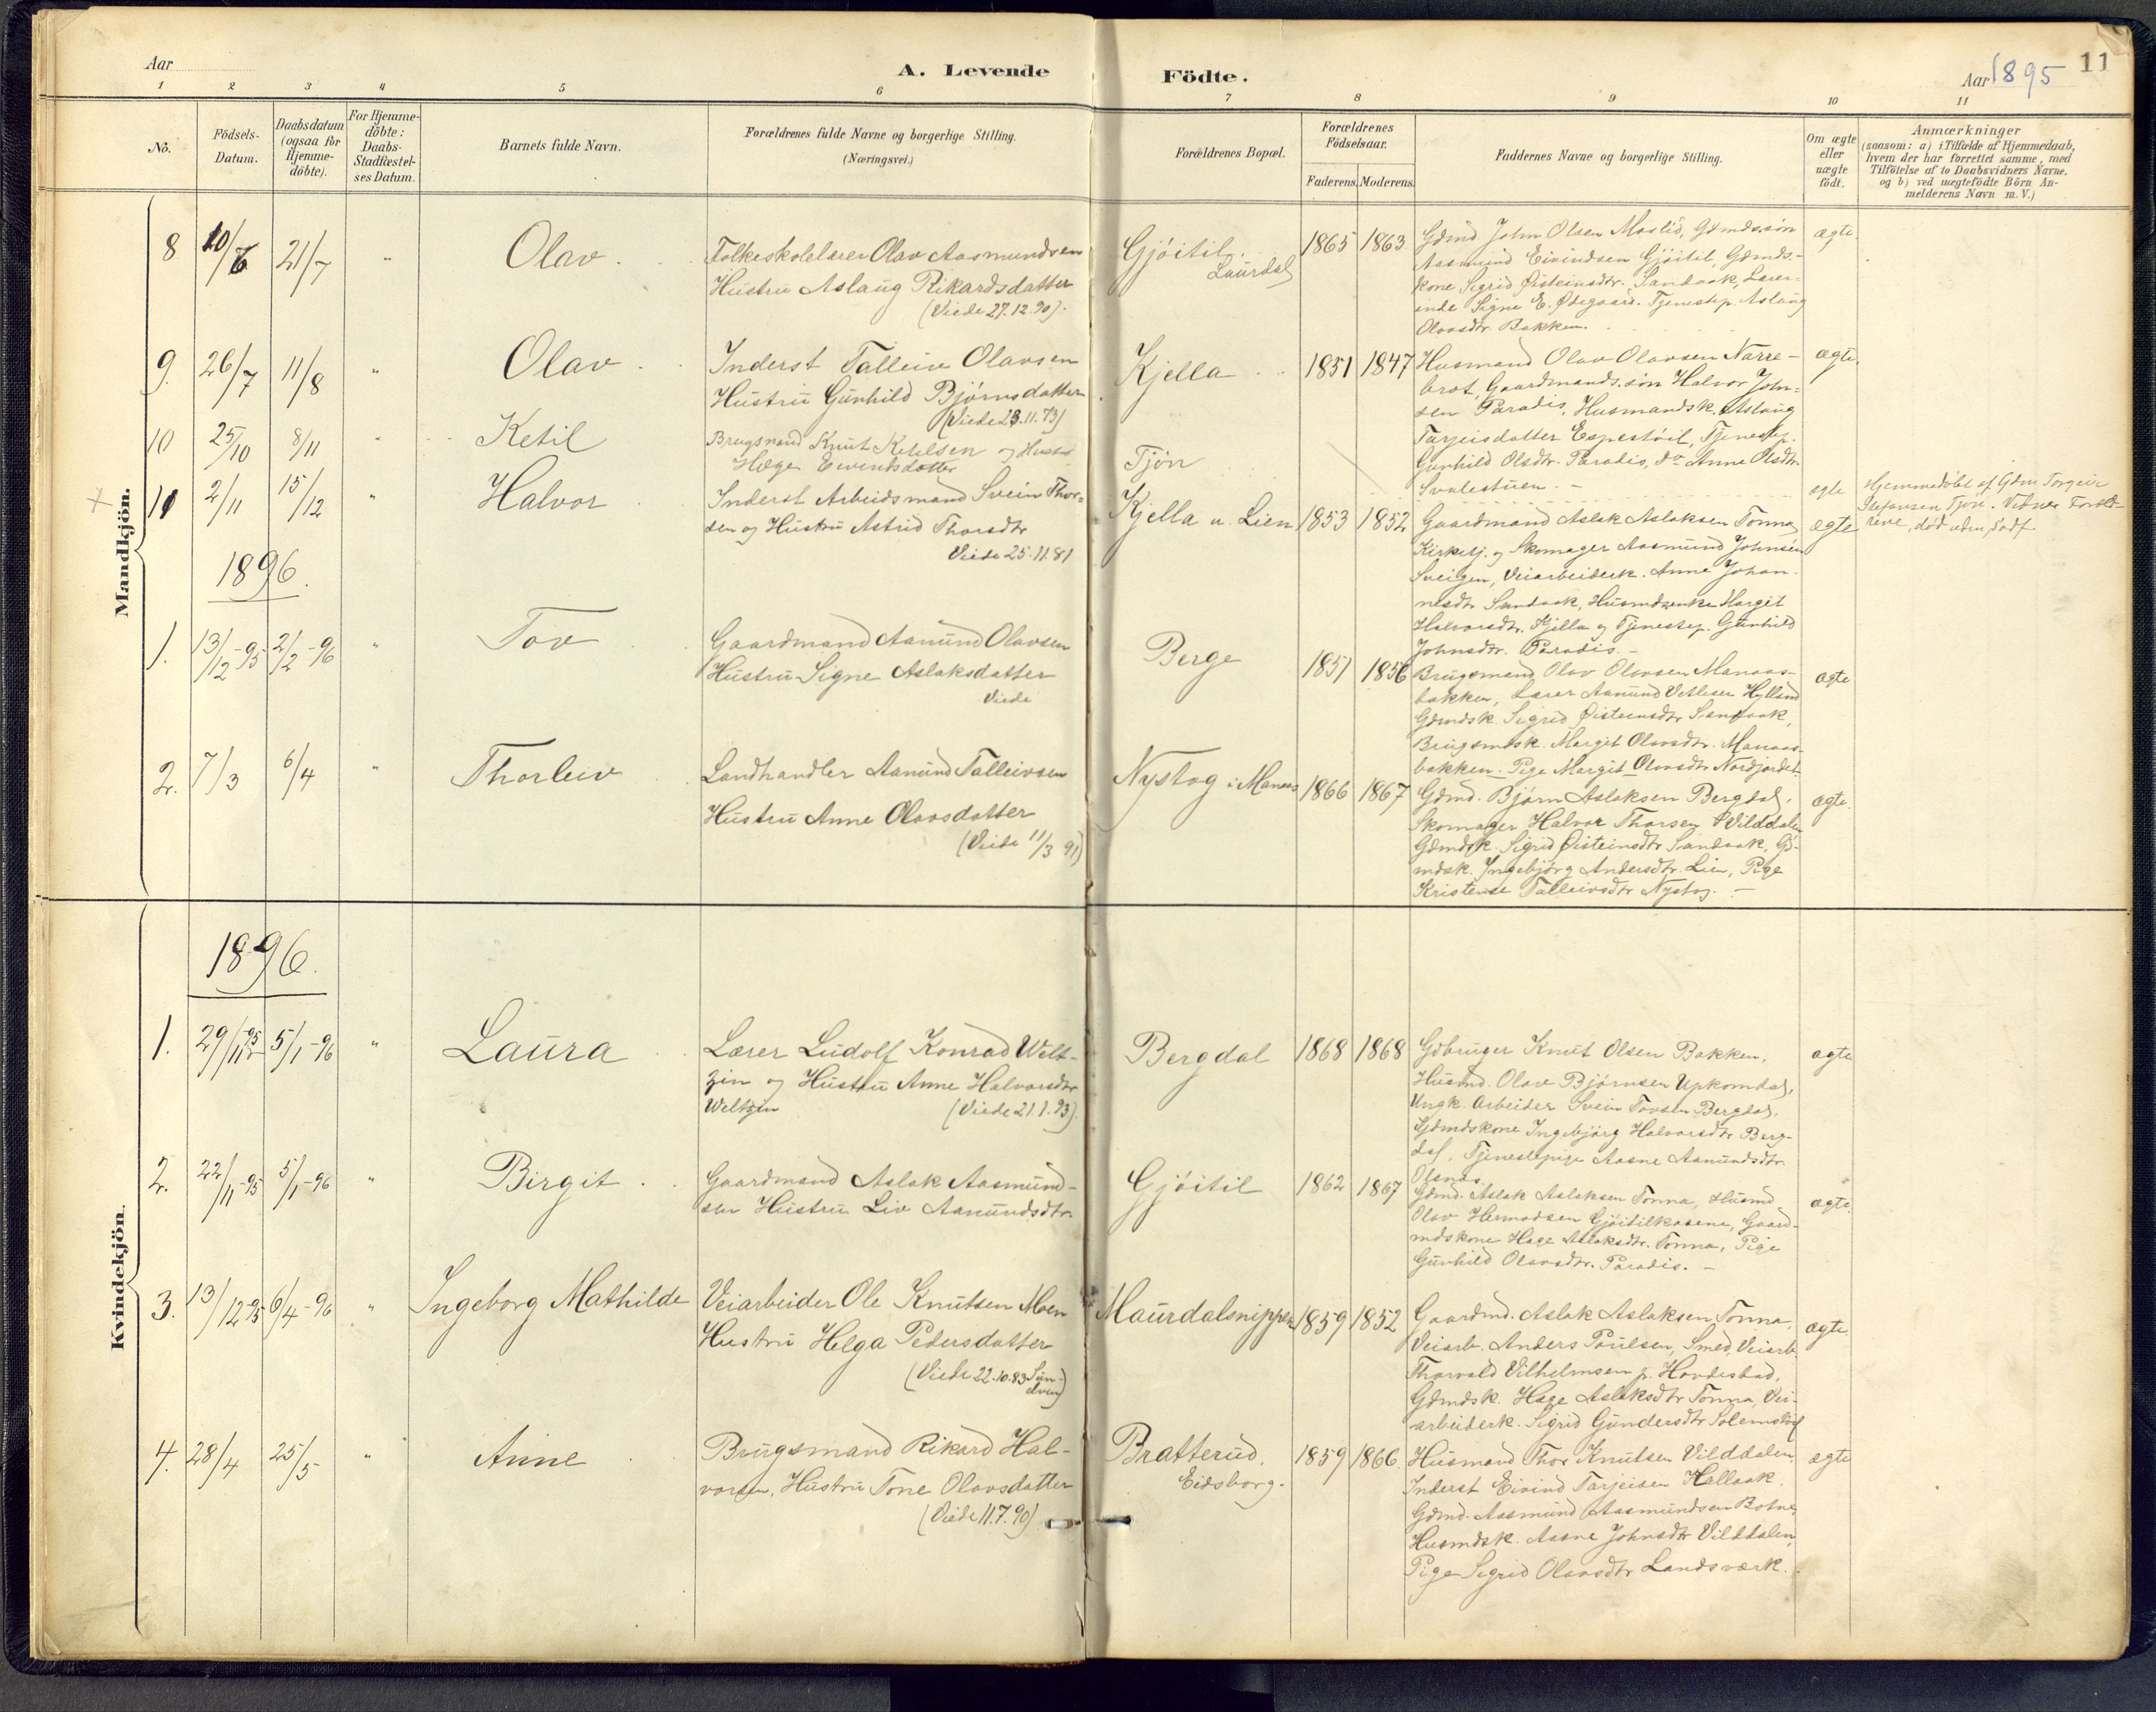 Aar
A. Levende
Födte.
Aar 1895
11
1 2 3 4 5 6 7 8 9 10 11
No.
Födsels-
Datum.
Daabsdatum
(ogsaa för
Hjemme-
döbte).
For Hjemme-
döbte:
Daabs-
Stadfæstel-
ses Datum.
Barnets fulde Navn.
Forældrenes fulde Navne og borgerlige Stilling.
(Næringsvei.)
Forældrenes Bopæl.
Forældrenes
Födselsaar.
Faderens. Moderens.
Faddernes Navne og borgerlige Stilling.
Om ægte
eller
uægte
födt.
Anmærkninger
(saasom: a) i Tilfælde af Hjemmedaab,
hvem der har forrettet samme, med
Tilföielse af to Daabsvidners Navne,
og b) ved uægtefödte Börn An-
melderens Navn m. V.)
Mandkjön.
8 10/6 21/7 " Olav
Folkeskolelærer Olav Aasmundsen
Hustru Aslaug Rikardsdatter
(Viede 27.12.90).
Gjöitil.
Laurdal
1865 1863
Gdmd John Olsen Moslid, Gdmdssön
Aasmund Eivindsen Gjöitil, Gdmds-
kone Sigrid Øisteinsdtr. Sandaak, Lærer-
inde Signe E. Ødegaard. Tjenestep. Aslaug
Olavsdtr. Bakken.
ægte.
9. 26/7 11/8 " Olav
Inderst Talleiv Olavsen
Hustru Gunhild Björnsdatter
(Viede 23.11.73)
Kjella
1851 1847
Husmand Olav Olavsen Narre-
brot, Gaardmands.sön Halvor John-
sen Paradis, Husmandsk. Aslaug
Tarjeisdatter Espestöil, Tjenestep.
Gunhild Olsdtr. Paradis, do Anne Olsdtr.
Svalestuen. -
ægte.
10 25/10 8/11 " Ketil
Brugsmand Knut Ketilsen og Hustru
Hæge Eivindsdatter
Tjön
ægte
Hjemmedöbt af Gdm. Torgeir
Stefansen Tjön. Vidner Foræld-
rene, död uden Daab
11 2/11 15/12 " Halvor
Inderst Arbeidsmand Svein Thor-
sen og Hustru Astrid Thorsdtr
Viede 25.11.81
Kjella u. Lien
1853 1852
Gaardmand Aslak Aslaksen Tonna
Kirkesj. og Skomager Aasmund Johnsen
Sveigen, Veiarbeiderk. Anne Johan-
nesdtr Sandaak, Husmdsenke Margit
Halvorsdtr. Kjella og Tjenestep. Gunhild
Johnsdtr. Paradis. -
ægte
1896.
1. 13/12-95 2/2-96 " Tov
Gaardmand Aanund Olavsen
Hustru Signe Aslaksdatter
Viede
Berge
1851 1856
Brugsmand Olav Olavsen Manaas-
bakken, Lærer Aanund Vetlesen Hylland
Gdmdsk. Sigrid Øisteinsdtr Sandaak,
Brugsmdsk. Margit Olavsdtr. Manaas-
bakken. Pige Margit Olavsdtr Nordjordet
ægte
2. 7/3 6/4 " Thorleiv
Landhandler Aanund Talleivsen
Hustru Anne Olavsdatter
(Viede 11/3 91)
Nystog i Manaas
1866 1867
Gdmd. Björn Aslaksen Bergdal,
Skomager Halvor Thorsen Vilddalen
Gdmdsk. Sigrid Øisteinsdtr Sandaak, Gd-
mdsk. Ingebjörg Andersdtr. Lien, Pige
Kristense Talleivsdtr Nystog. -
ægte.
Kvindekjön.
1896.
1. 29/11-95 5/1-96 " Laura
Lærer Ludolf Konrad Welt-
zin og Hustru Anne Halvorsdtr
Weltzin (Viede 21.1.93).
Bergdal
1868 1868
Gdbruger Knut Olsen Bakken,
Husmd. Olav Björnsen Upkomdal,
Ungk. Arbeider Svein Tovsen Bergdal.
Gdmdskone Ingebjörg Halvorsdtr Berg-
dal, Tjenestepige Aasne Aanundsdtr.
Osnes.
ægte
2. 22/11-95 5/1-96 " Birgit
Gaardmand Aslak Aasmund-
sen Hustru Liv Aanundsdtr.
Gjöitil
1862 1867
Gdmd. Aslak Aslaksen Tonna, Husmd
Olav Hermodsen Gjöitilkaasene, Gaard-
mdskone Hæge Aslaksdtr. Tonna, Pige
Gunhild Olavsdtr. Paradis. -
ægte.
3. 13/12-95 6/4-96 " Ingeborg Mathilde
Veiarbeider Ole Knutsen Moen
Hustru Helga Pedersdatter
(Viede 22.10.83 Sun-
dven)
Maurdalsnippen
1859 1852
Gaardmd. Aslak Aslaksen Tonna,
Veiarb. Anders Poulsen, Smed, Veiarb.
Thorvald Vilhelmsen p. Hovdestad,
Gdmdsk. Hæge Aslaksdtr Tonna, Vei-
arbeiderk. Sigrid Gundersdtr
ægte
4. 28/4 25/5 " Anne
Brugsmand Rikard Hal-
vorsen, Hustru Tone Olavsdatter
(Viede 11.7.90)
Bratterud.
Eidsborg.
1859 1866.
Husmand Thor Knutsen Vilddalen,
Inderst Eivind Tarjeisen Hallaak.
Gdmd. Aasmund Aasmundsen Botne,
Husmdsk. Aasne Johnsdtr Vilddalen,
Pige Sigrid Olavsdtr Landsværk.
ægte